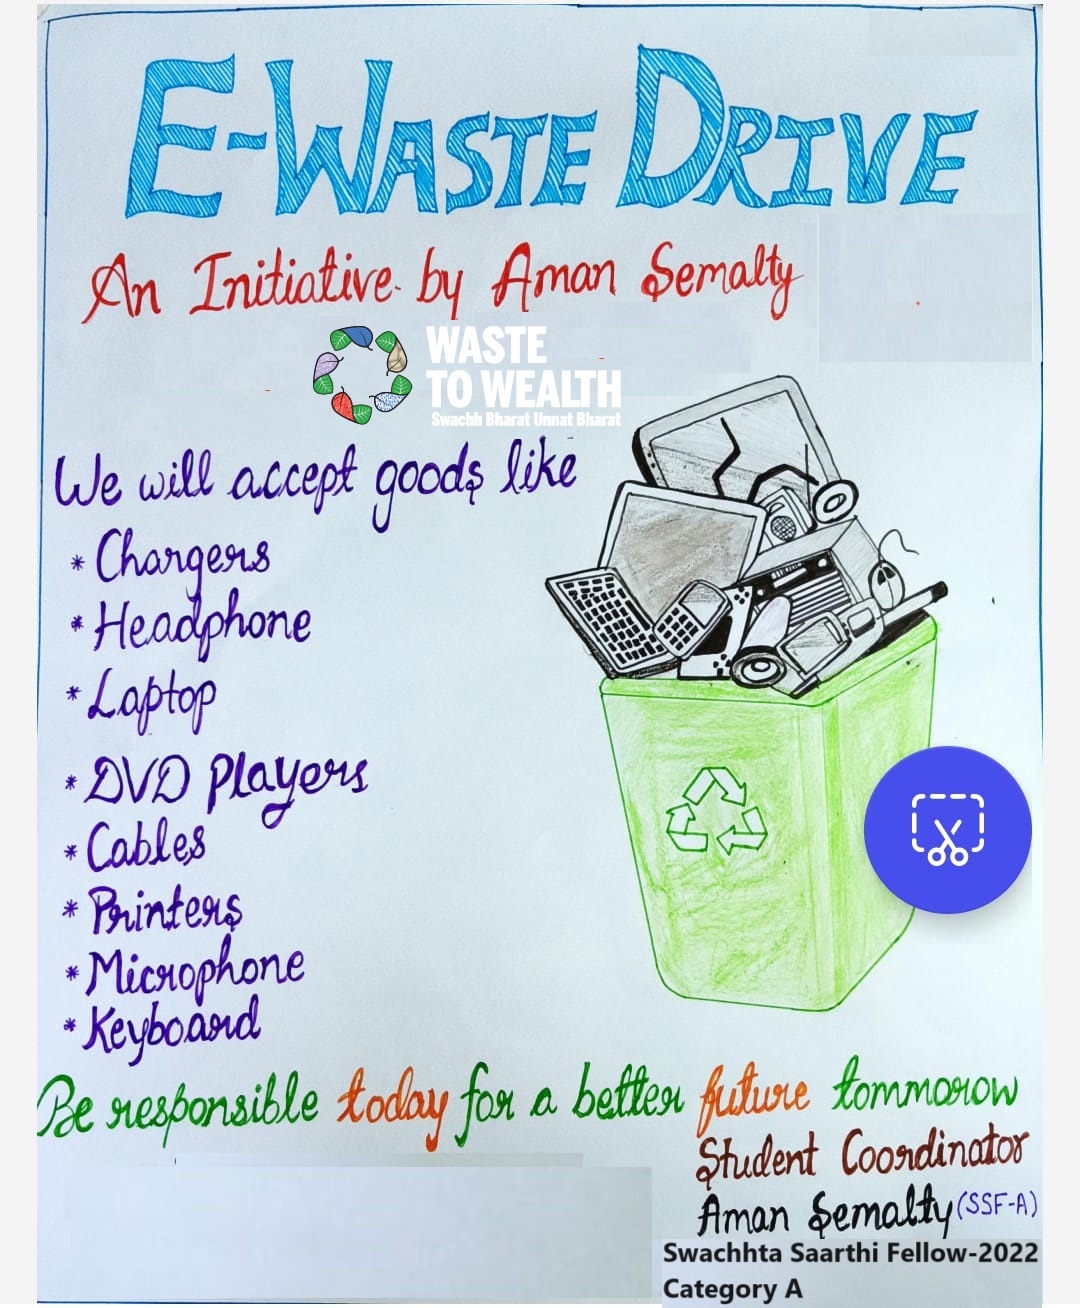 E-WASTE DRIVE
An Initiative by Aman Semalty
WASTE
TO WEALTH
Swachh Bharat Unnat Bharat
We will accept goods like
* Chargers
* Headphone
* Laptop
* DVD Players
* Cables
* Printers
* Microphone
* Keyboard
Be responsible today for a better future tommorow
Student Coordinator
Aman Semalty (SSF-A)
Swachhta Saarthi Fellow-2022
Category A